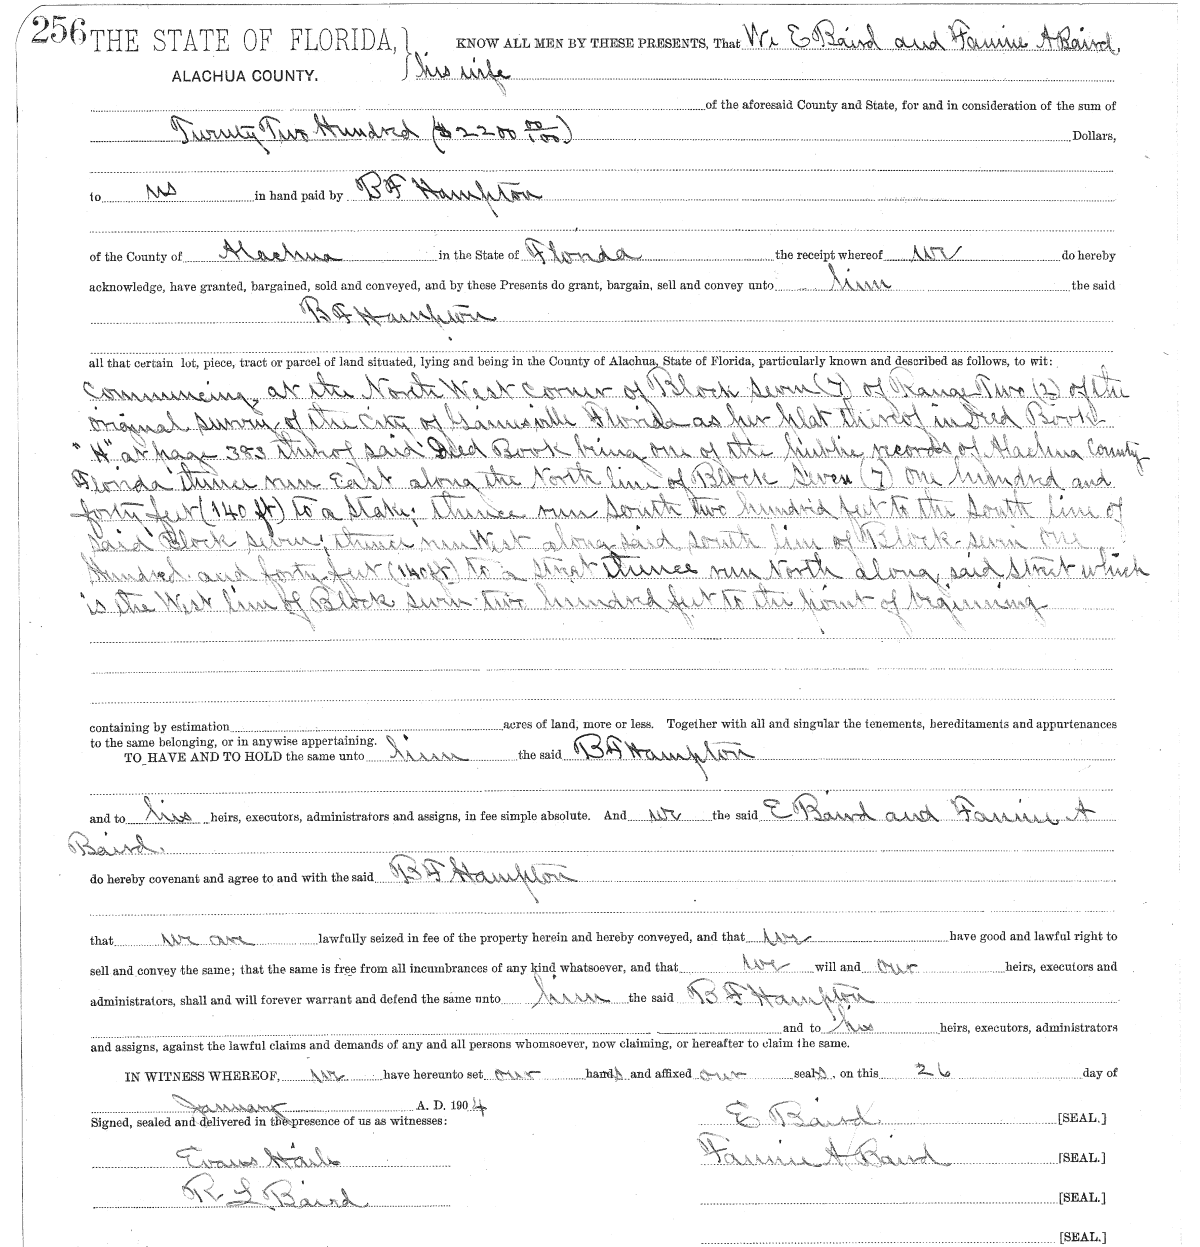 256 THE STATE OF FLORIDA, KNOW ALL MEN BY THESE PRESENTS, That We E Baird and Fannie A Baird,
ALACHUA COUNTY. his wife
of the aforesaid County and State, for and in consideration of the sum of
Twenty Two Hundred ($2200 00/100) Dollars,
to us in hand paid by B F Hampton
of the County of Alachua in the State of Florida the receipt whereof we do hereby
acknowledge, have granted, bargained, sold and conveyed, and by these Presents do grant, bargain, sell and convey unto him the said
B F Hampton
all that certain lot, piece, tract or parcel of land situated, lying and being in the County of Alachua, State of Florida, particularly known and described as follows, to wit:
Commencing at the North West Corner of Block Seven (7) of Range Two (2) of the
original survey of the City of Gainesville Florida as per plat thereof in Deed Book
"H" at page 383 thereof said Deed Book being one of the public records of Alachua County
Florida thence run East along the North line of Block Seven (7) One hundred and
forty feet (140 ft) to a Stake; thence run South two hundred feet to the South line of
said Block seven; thence run West along said south line of Block seven One
Hundred and forty feet (140 ft) to a street thence run North along said street which
is the West line of Block seven two hundred feet to the point of beginning
containing by estimation acres of land, more or less. Together with all and singular the tenements, hereditaments and appurtenances
to the same belonging, or in anywise appertaining.
TO HAVE AND TO HOLD the same unto him the said B F Hampton
and to his heirs, executors, administrators and assigns, in fee simple absolute. And we the said E Baird and Fannie A
Baird.
do hereby covenant and agree to and with the said B F Hampton
that we are lawfully seized in fee of the property herein and hereby conveyed, and that we have good and lawful right to
sell and convey the same; that the same is free from all incumbrances of any kind whatsoever, and that we will and our heirs, executors and
administrators, shall and will forever warrant and defend the same unto him the said B F Hampton
and to his heirs, executors, administrators
and assigns, against the lawful claims and demands of any and all persons whomsoever, now claiming, or hereafter to claim the same.
IN WITNESS WHEREOF, we have hereunto set our hands and affixed our seals, on this 26 day of
January A. D. 1904
Signed, sealed and delivered in the presence of us as witnesses: E Baird [SEAL.]
Evans Haile Fannie A Baird [SEAL.]
R. L Baird [SEAL.]
[SEAL.]